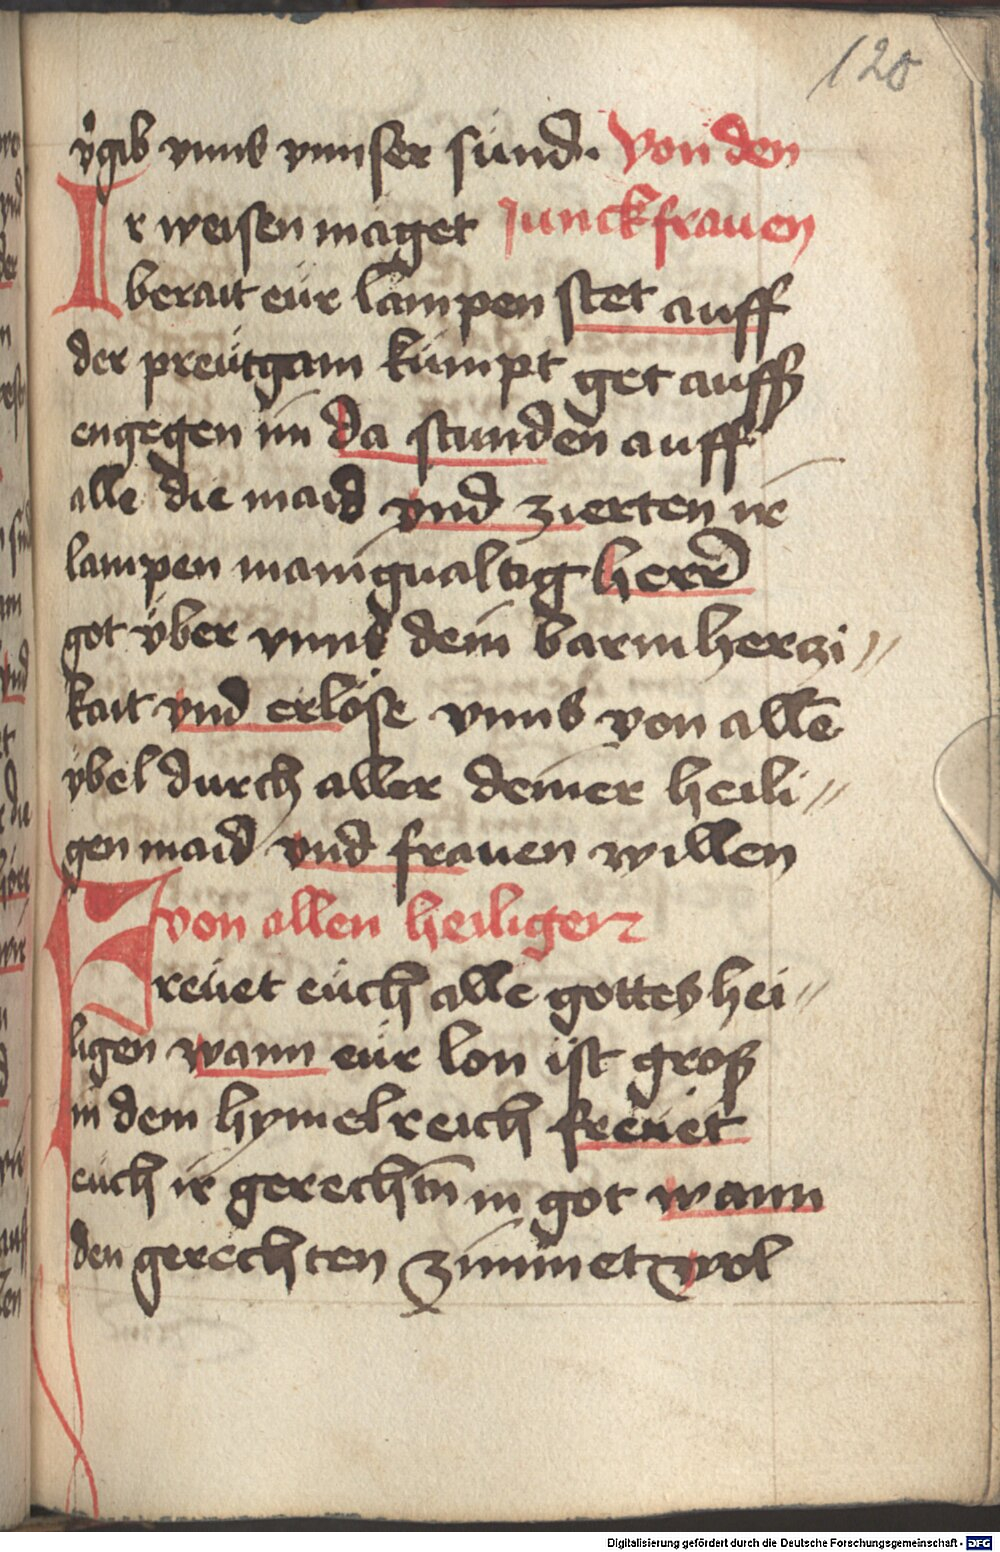 120
v̊gib vnns vnnser sünd. Von den
Ir weisen maget Junckfrauen
berait eür lampen stet auff
der preütgam kümpt get auff
engegen im da stunden auff
alle die maid vnd zierten ir
lampen manigualtig herr
got über vnns dein barmherzi〃
kait vnd erlöse vnns von allē
ybel durch aller deiner heili〃
gen maid vnd frauen willen
von allen heiligen
Freüet eüch alle gottes hei〃
ligen wann eür lon ist groß
in dem hymelreich freüet
eüch ir gerechtñ in got wann
den gerechten zimmet wol
Digitalisierung gefördert durch die Deutsche Forschungsgemeinschaft - DFG